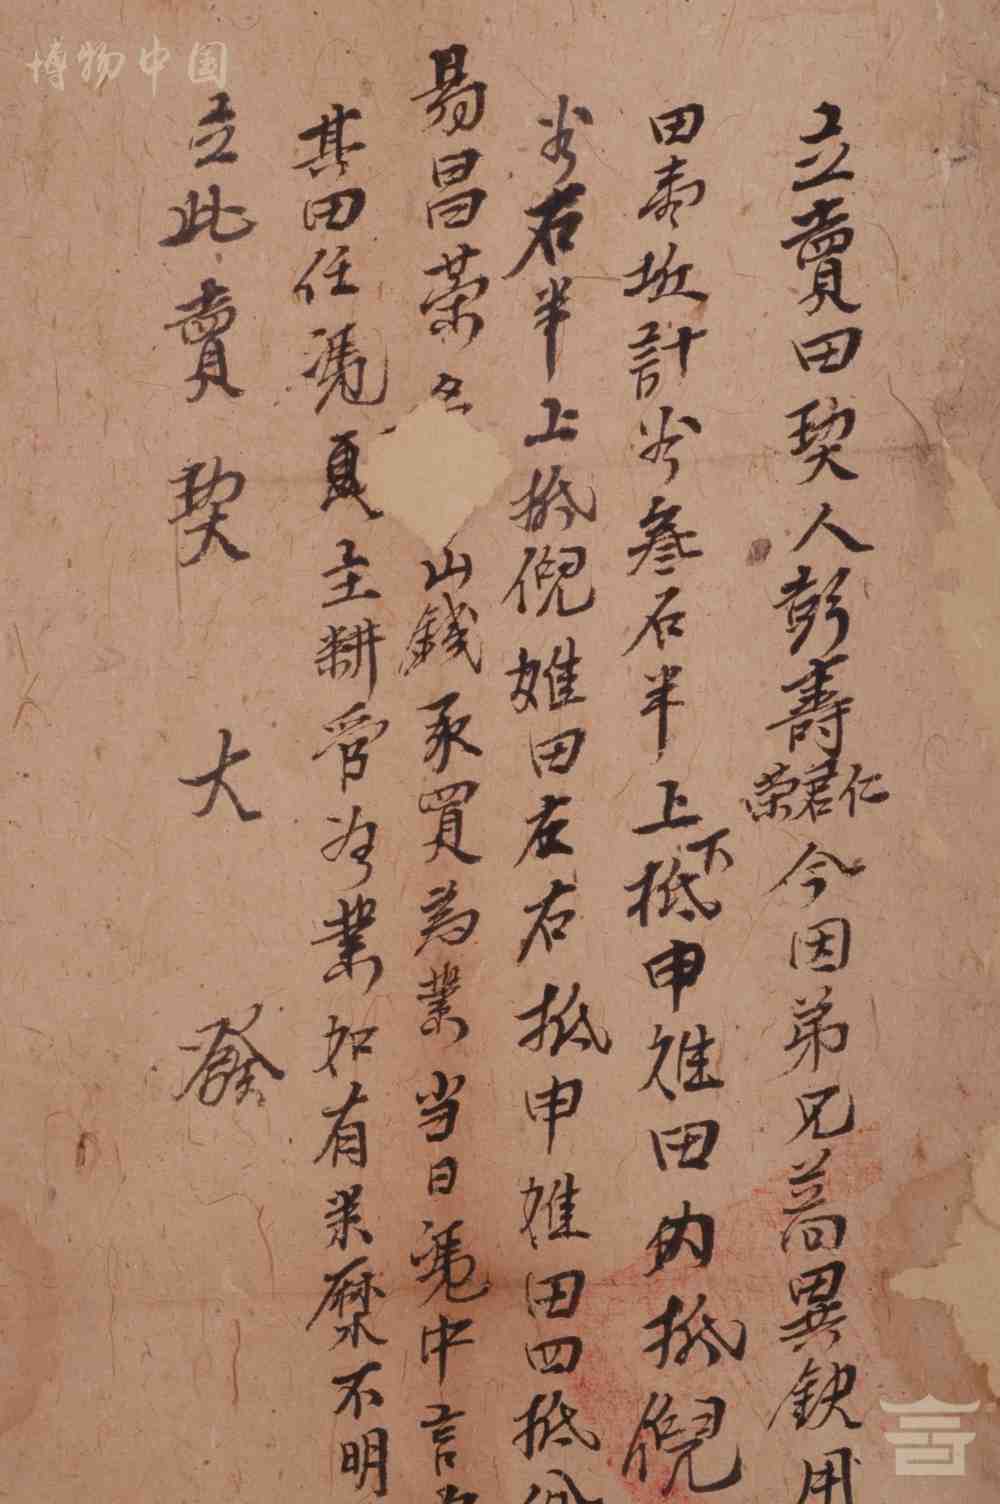 博物中国
立賣田契人彭壽仁君榮今因弟兄商異鈌用
田壹坵計谷叁石半上下抵申姓田内抵倪
谷石半上抵倪姓田左右抵申姓田四抵分
易昌荣名山錢承買為業当日凴中言
其田任凴買主耕管為業如有来歷不明
立此賣契大發